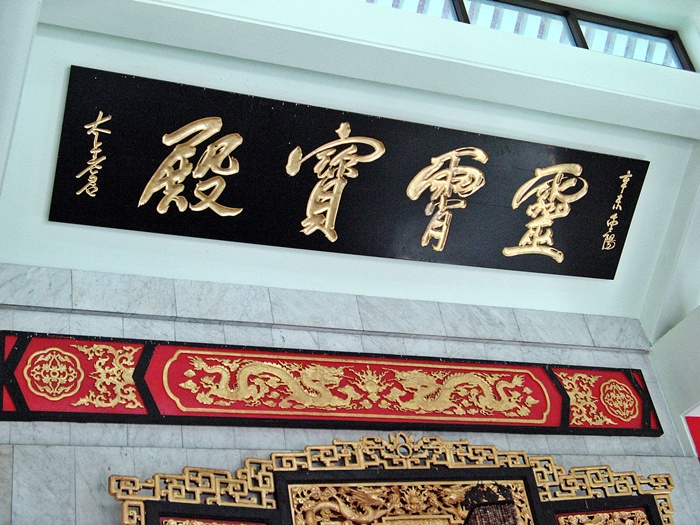 辛未重陽
靈霄寶殿
太上老君